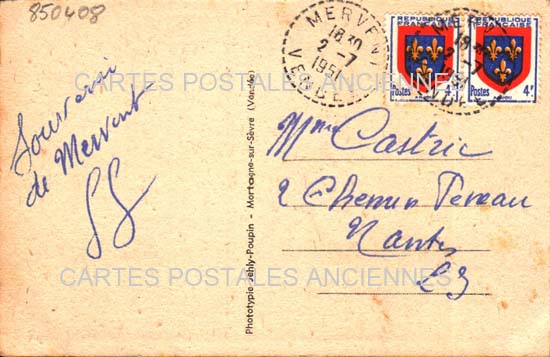 850408
MERVENT
18 30
2-7
VENDEE
REPUBLIQUE FRANÇAISE
Postes
4F
REPUBLIQUE FRANÇAISE
Postes
4F
CARTES POSTALES ANCIENNES
Souvenir
de Mervent
Phototypie Jehly-Poupin - Mortagne-sur-Sèvre (Vendée)
Mme Castric
2 Chemin
Nantes
CARTES POSTALES ANCIENNES